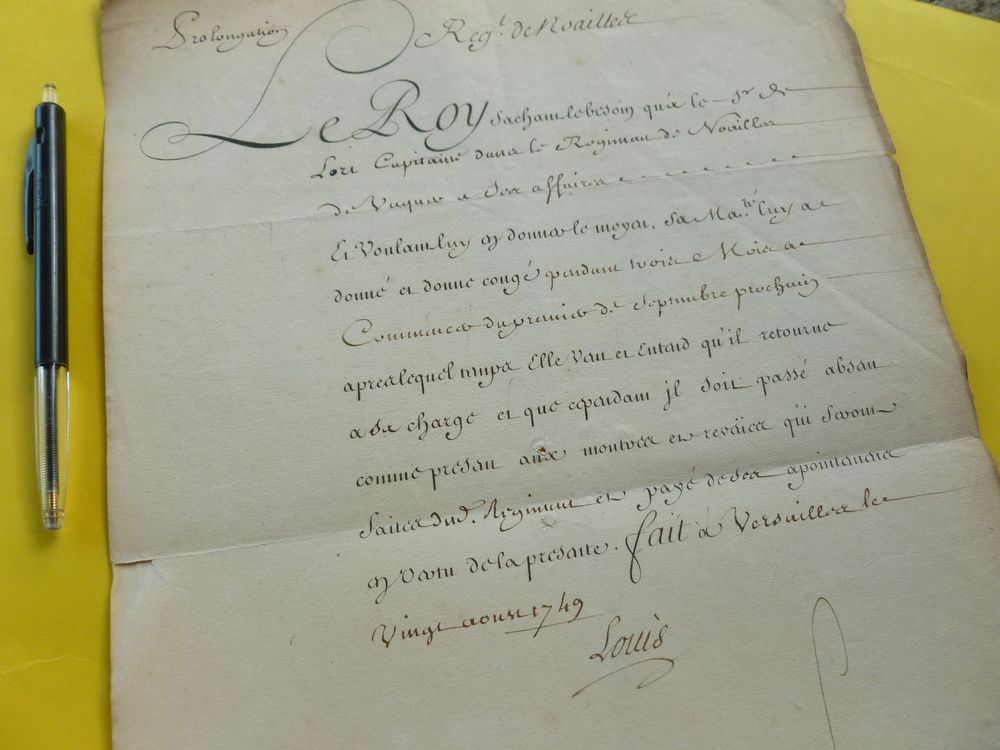 Prolongation Reg.t de Noailles
Le Roy sachant le besoin qu'a le Sr. de
Lort Capitaine dans le Regiment de Noailles
de Vaquer a ses affaires
Et Voulant luy en donner le moyen, Sa Ma.té luy a
donné et donne congé pendant trois Mois a
Commencer du premier de Septembre prochain
apres lequel temps Elle Veut et Entend qu'il retourne
a sa charge et que cependant jl soit passé absent
comme present aux montres et reveües qui seront
faites dud. Regiment et payé de ses apointements
en vertu de la presente. fait à Versailles le
Vingt aoust 1749
Louis